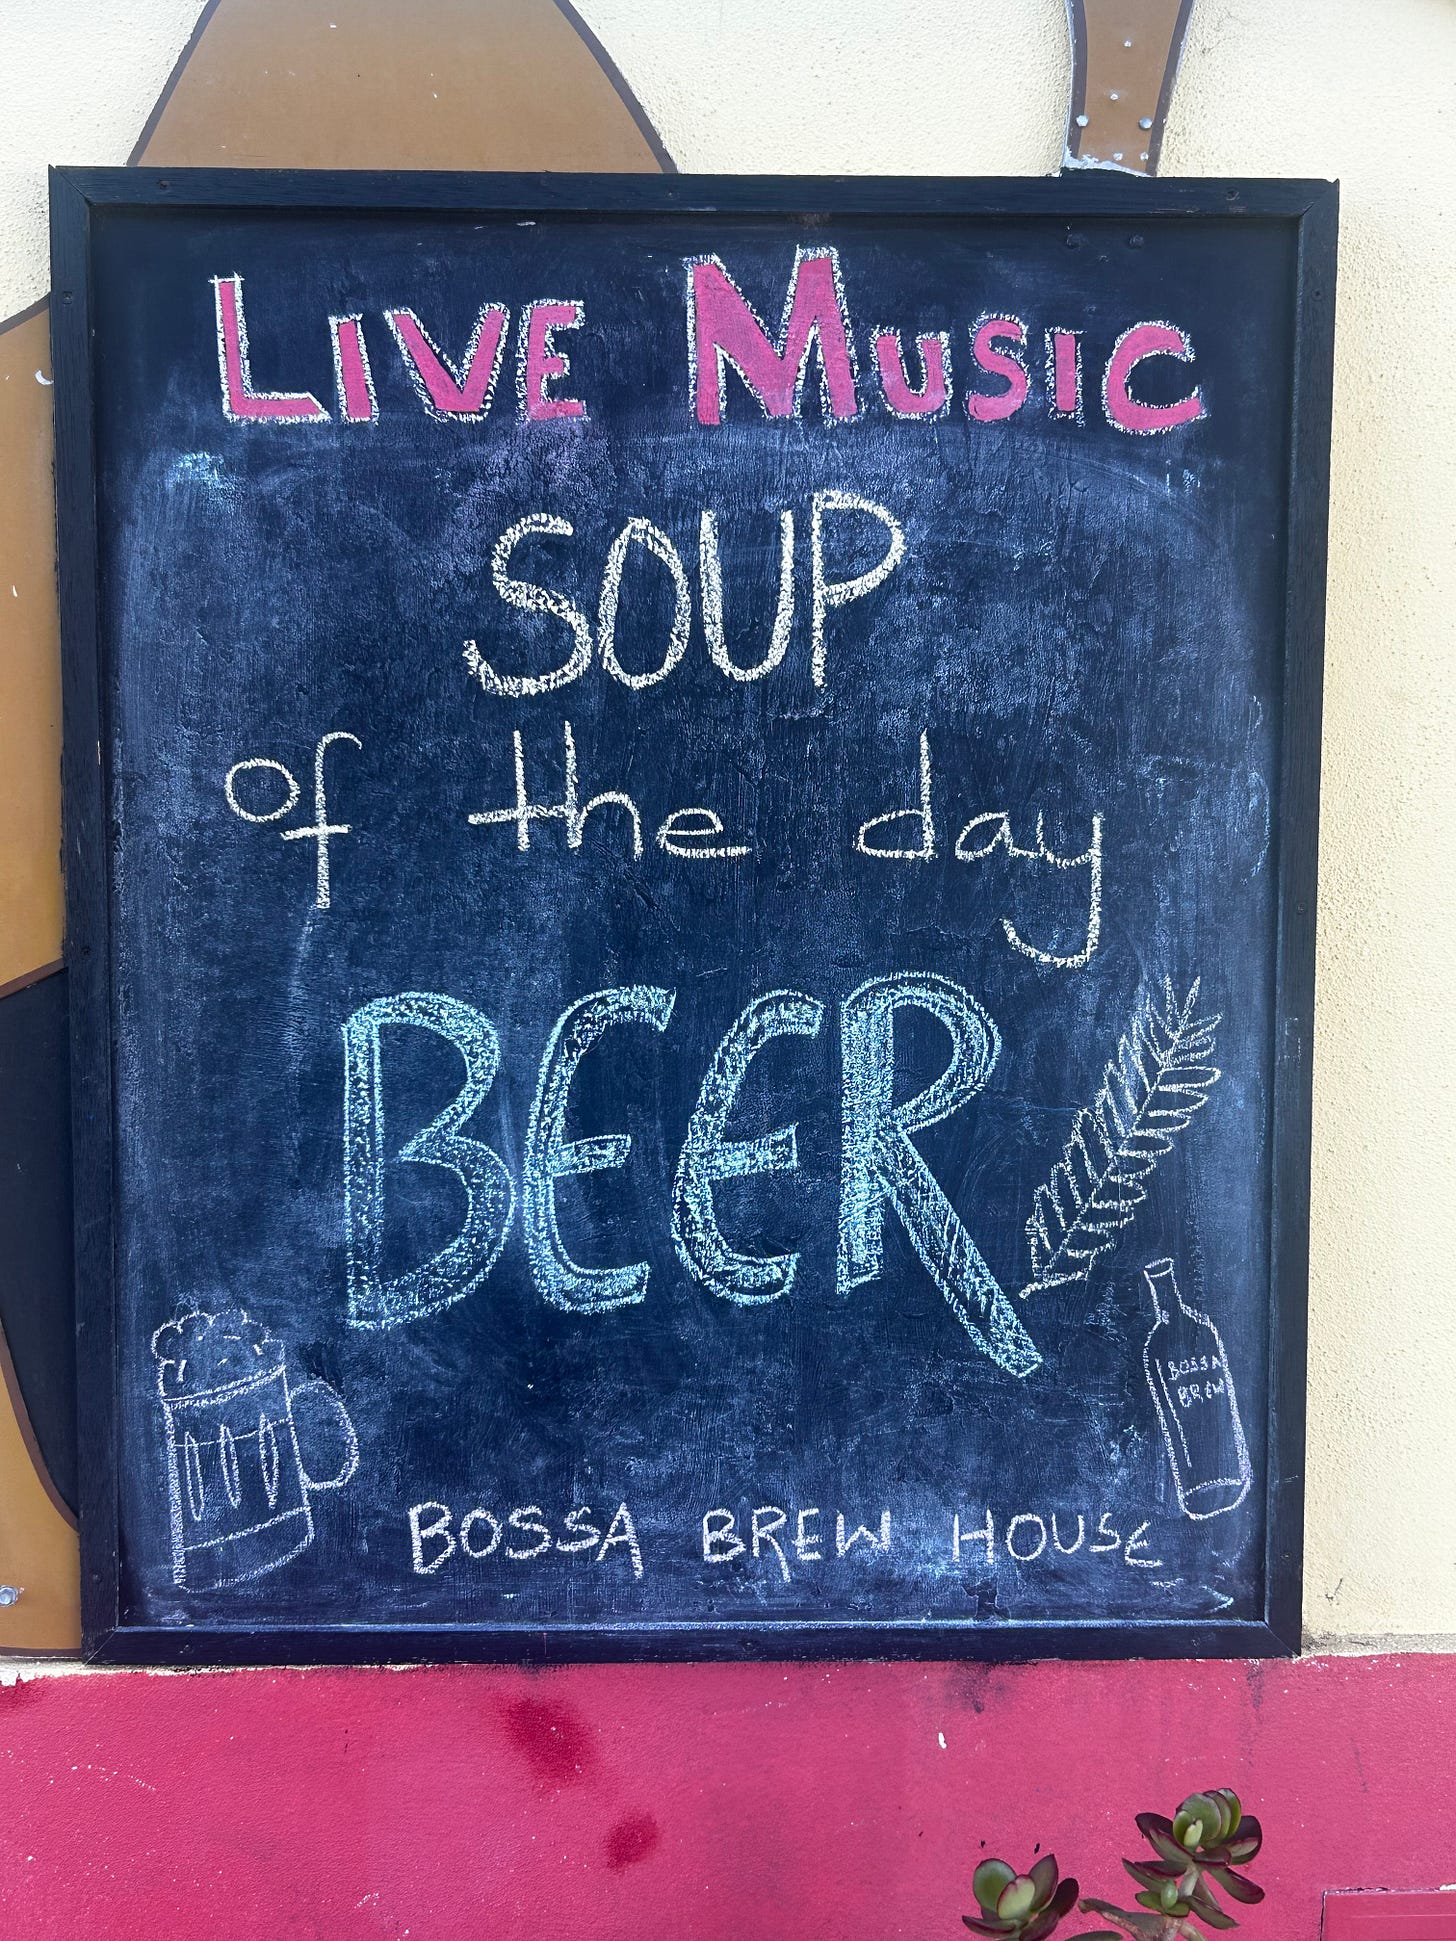 LIVE MUSIC
SOUP
of the day
BEER
BOSSA
BREW
BOSSA BREW HOUSE